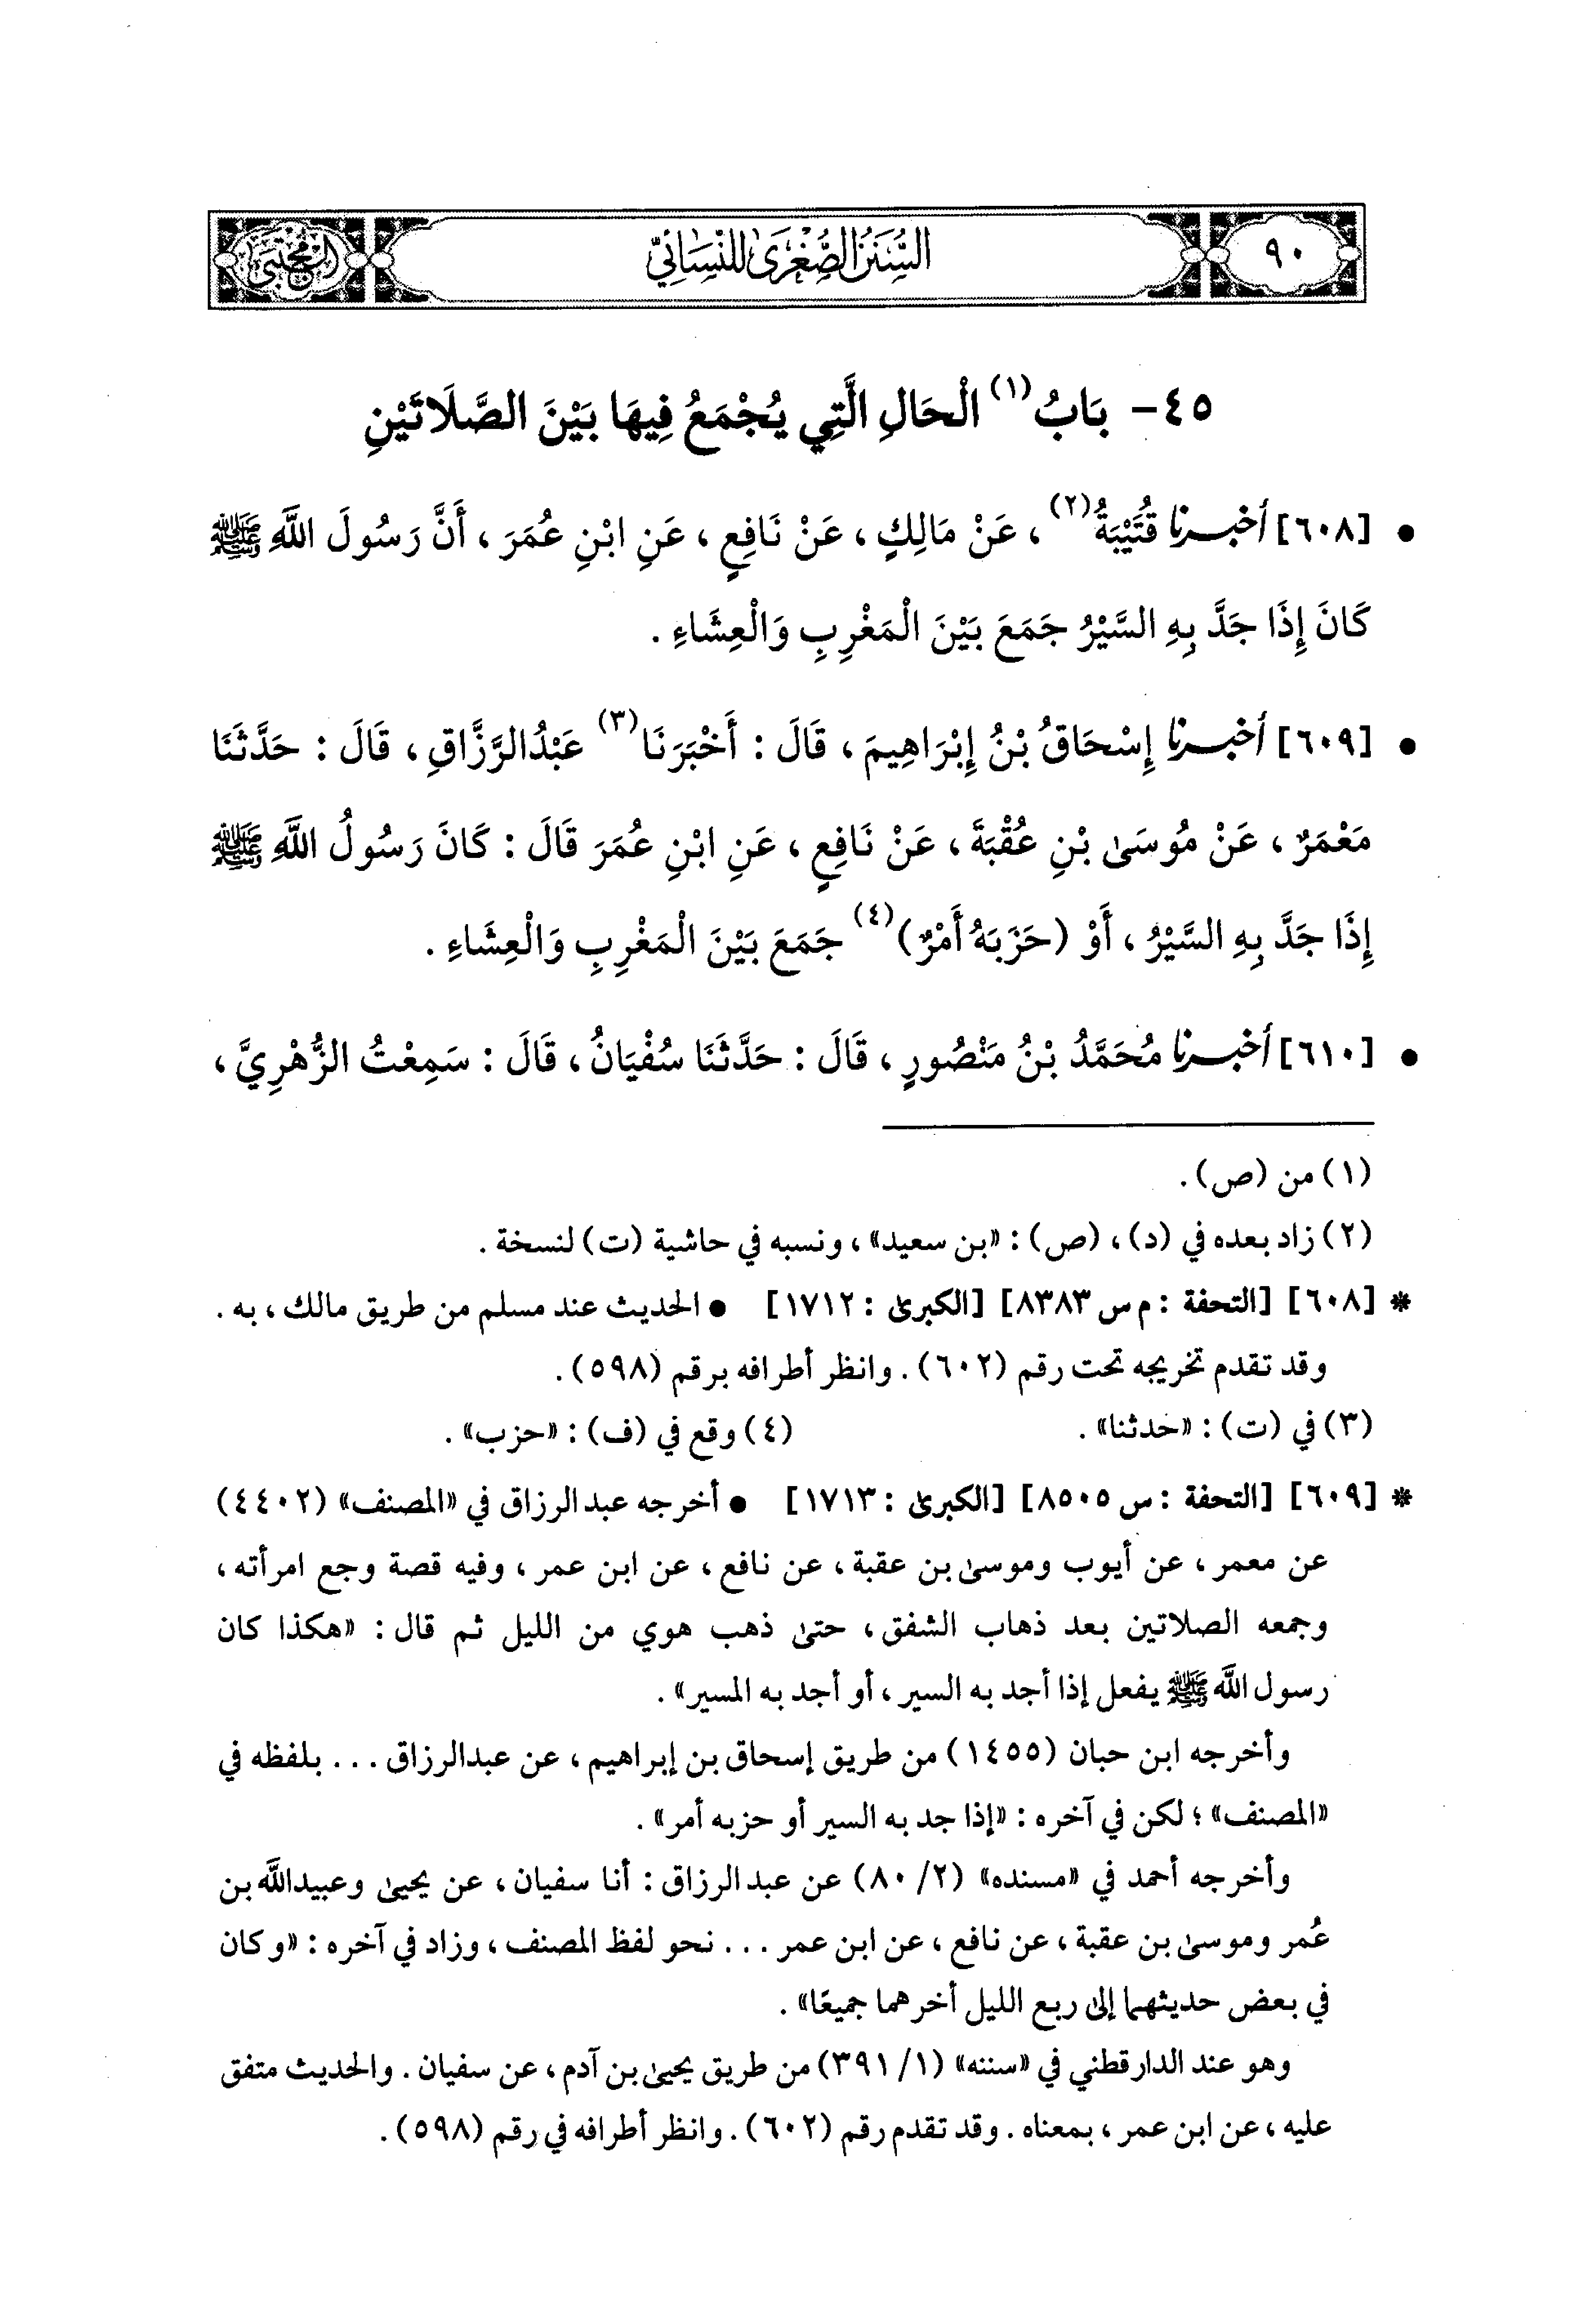 ٩٠
السُّنَنُ الصُّغْرَىٰ لِلنَّسَائِيِّ
المجتبى
٤٥- بَابُ(١) الْحَالِ الَّتِي يُجْمَعُ فِيهَا بَيْنَ الصَّلَاتَيْنِ
• [٦٠٨] أخبرنا قُتَيْبَةُ(٢)، عَنْ مَالِكٍ، عَنْ نَافِعٍ، عَنِ ابْنِ عُمَرَ، أَنَّ رَسُولَ اللَّهِ ﷺ
كَانَ إِذَا جَدَّ بِهِ السَّيْرُ جَمَعَ بَيْنَ الْمَغْرِبِ وَالْعِشَاءِ.
• [٦٠٩] أخبرنا إِسْحَاقُ بْنُ إِبْرَاهِيمَ، قَالَ: أَخْبَرَنَا(٣) عَبْدُالرَّزَّاقِ، قَالَ: حَدَّثَنَا
مَعْمَرٌ، عَنْ مُوسَىٰ بْنِ عُقْبَةَ، عَنْ نَافِعٍ، عَنِ ابْنِ عُمَرَ قَالَ: كَانَ رَسُولُ اللَّهِ ﷺ
إِذَا جَدَّ بِهِ السَّيْرُ، أَوْ (حَزَبَهُ أَمْرٌ)(٤) جَمَعَ بَيْنَ الْمَغْرِبِ وَالْعِشَاءِ.
• [٦١٠] أخبرنا مُحَمَّدُ بْنُ مَنْصُورٍ، قَالَ: حَدَّثَنَا سُفْيَانُ، قَالَ: سَمِعْتُ الزُّهْرِيَّ،
(١) من (ص).
(٢) زاد بعده في (د)، (ص): «بن سعيد»، ونسبه في حاشية (ت) لنسخة.
* [٦٠٨] [التحفة: م س ٨٣٨٣] [الكبرىٰ: ١٧١٢] • الحديث عند مسلم من طريق مالك، به.
وقد تقدم تخريجه تحت رقم (٦٠٢). وانظر أطرافه برقم (٥٩٨).
(٣) في (ت): «حدثنا». (٤) وقع في (ف): «حزب».
* [٦٠٩] [التحفة: س ٨٥٠٥] [الكبرىٰ: ١٧١٣] • أخرجه عبدالرزاق في «المصنف» (٤٤٠٢)
عن معمر، عن أيوب وموسىٰ بن عقبة، عن نافع، عن ابن عمر، وفيه قصة وجع امرأته،
وجمعه الصلاتين بعد ذهاب الشفق، حتىٰ ذهب هوي من الليل ثم قال: «هكذا كان
رسول اللَّه ﷺ يفعل إذا أجد به السير، أو أجد به المسير».
وأخرجه ابن حبان (١٤٥٥) من طريق إسحاق بن إبراهيم، عن عبدالرزاق... بلفظه في
«المصنف»؛ لكن في آخره: «إذا جد به السير أو حزبه أمر».
وأخرجه أحمد في «مسنده» (٨٠/٢) عن عبدالرزاق: أنا سفيان، عن يحيىٰ وعبيداللَّه بن
عُمر وموسىٰ بن عقبة، عن نافع، عن ابن عمر... نحو لفظ المصنف، وزاد في آخره: «وكان
في بعض حديثهما إلىٰ ربع الليل أخرهما جميعًا».
وهو عند الدارقطني في «سننه» (٣٩١/١) من طريق يحيىٰ بن آدم، عن سفيان. والحديث متفق
عليه، عن ابن عمر، بمعناه. وقد تقدم رقم (٦٠٢). وانظر أطرافه في رقم (٥٩٨).